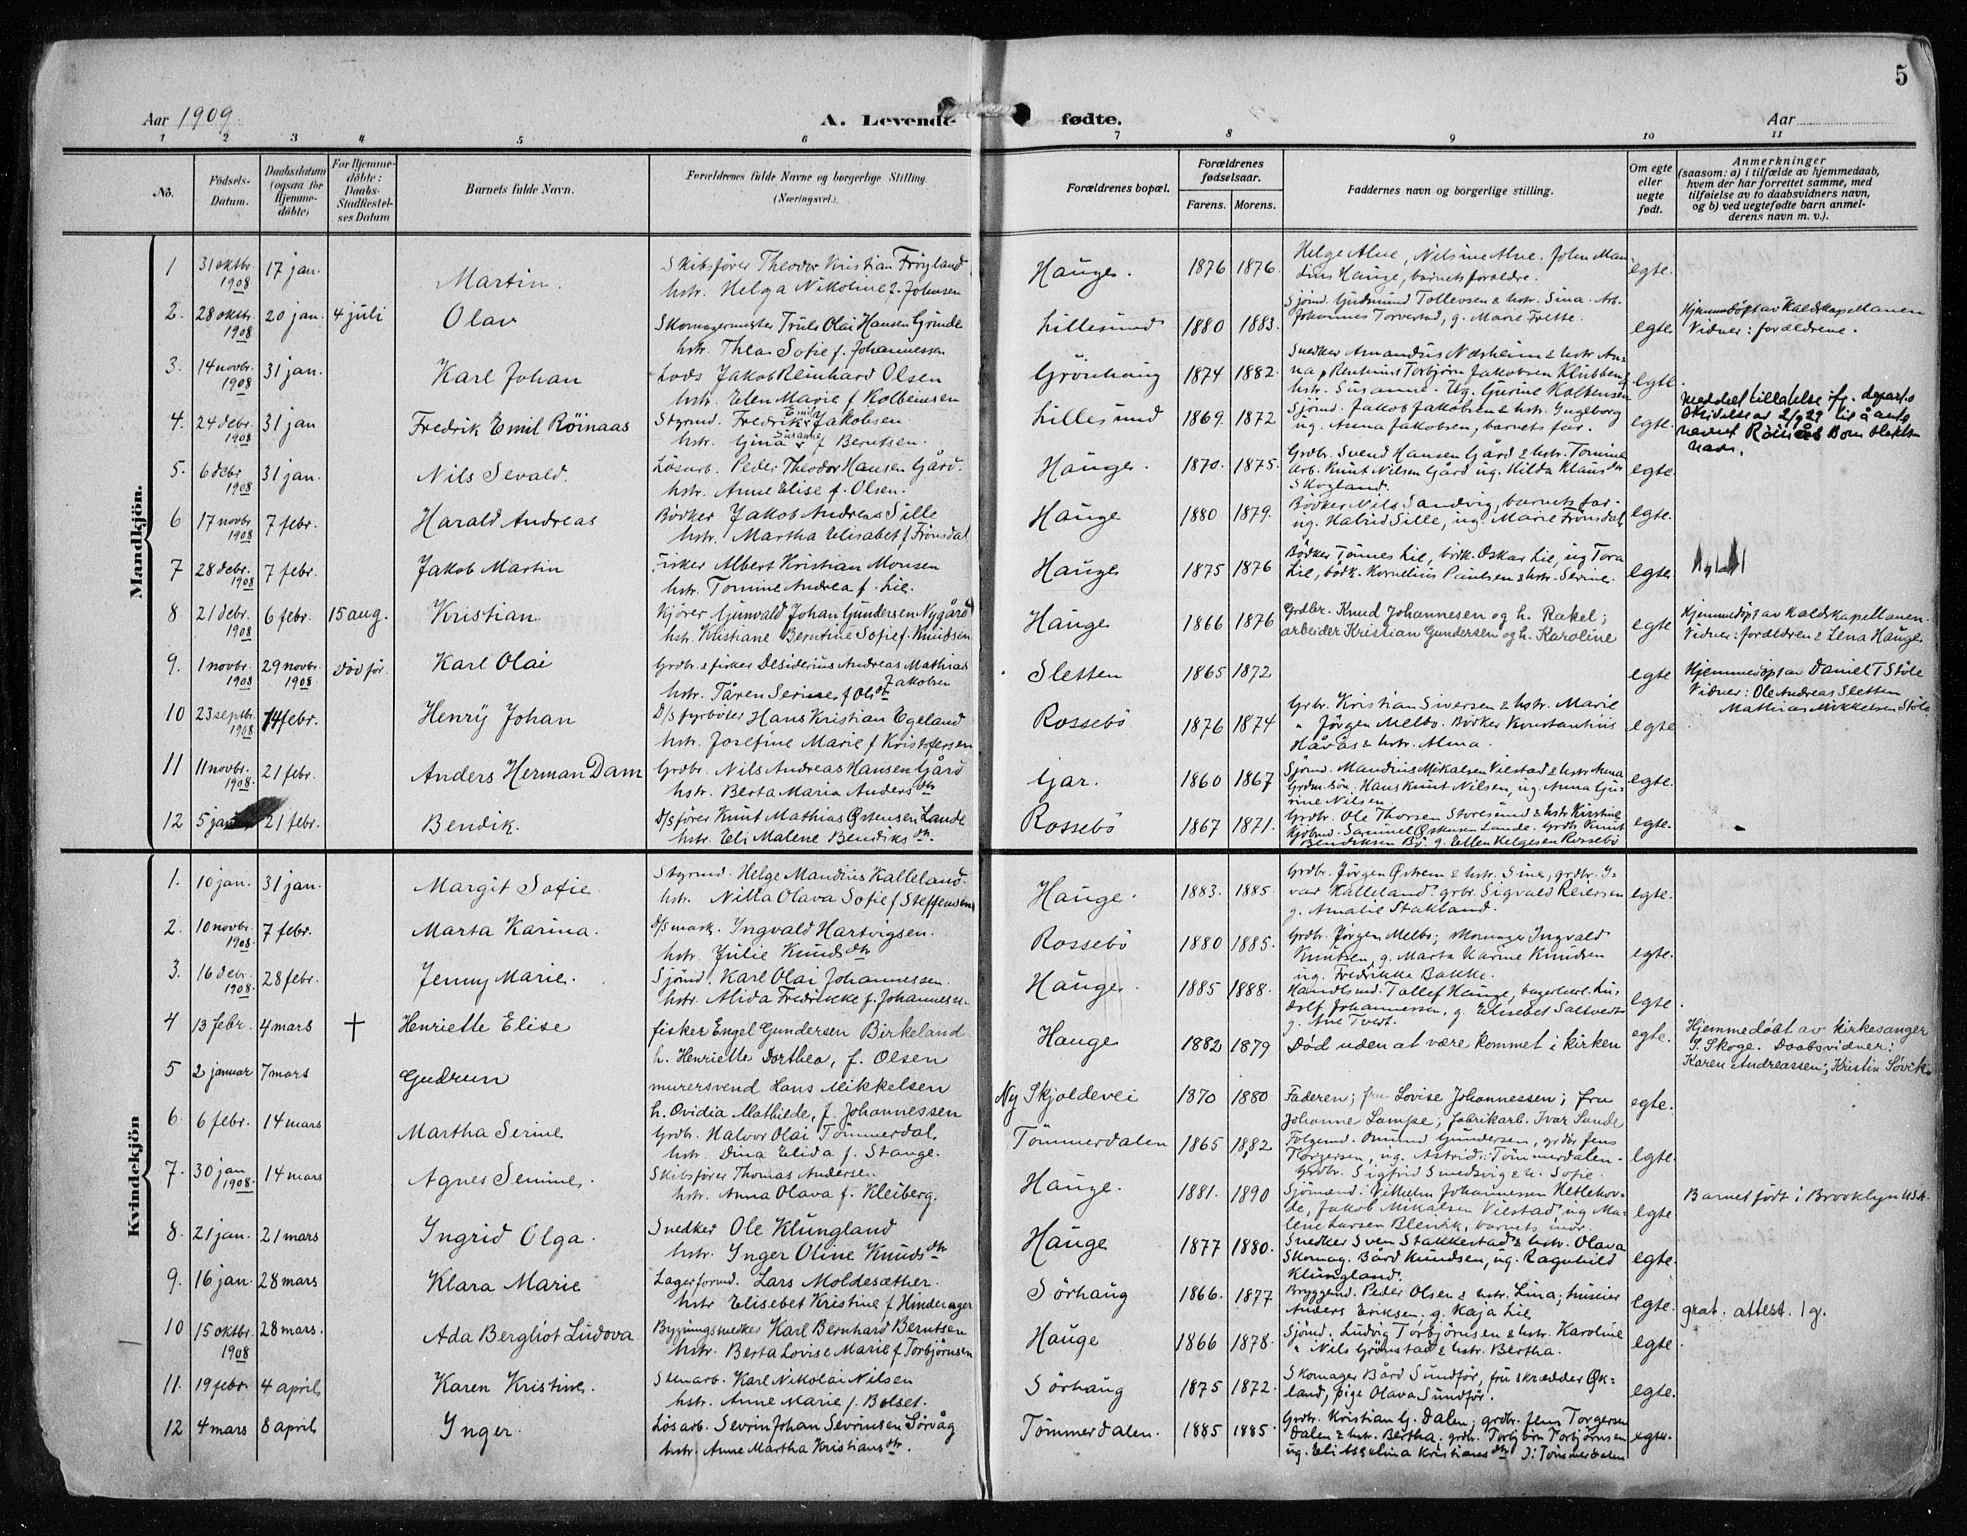 5
Aar 1909
A. Levende fødte.
Aar
1 2 3 4 5 6 7 8 9 10 11
No. Födsels-Datum. Daabsdatum (ogsaa for Hjemme-döbte) For Hjemme-döbte: Daabs-Stadfæstel-ses Datum Barnets fulde Navn. Forældrenes fulde Navne og borgerlige Stilling. (Næringsvei.) Forældrenes bopæl. Forældrenes fødselsaar. Farens. Morens. Faddernes navn og borgerlige stilling. Om egte eller uegte født. Anmerkninger (saasom: a) i tilfælde av hjemmedaab, hvem der har forrettet samme, med tilføielse av to daabsvidners navn, og b) ved uegtefødte barn anmel-derens navn m. v.).
Mandkjön.
1 31 oktbr. 1908 17 jan. Martin. Skibsfører Theodor Kristian Frøyland
hstr. Helga Nikoline f. Johnsen
Hauge. 1876 1876. Helge Alne, Nilsine Alne. John Man-
dius Hauge, barnets foraldre. egte.
2. 28 oktr. 1908 20 jan. 4 juli Olav Skomagermester Truls Olai Hansen Grinde
hstr. Thea Sofie f. Johannessen
Lillesund 1880 1883. Sjömd. Gudmund Tollevsen & hstr. Sina. Arb.
Johannes Torvestad, g. Marie Frette. egte Hjemmedøpt av Kaldskapellanen
Vidner: forældrene.
3. 14 novbr. 1908 31 jan. Karl Johan Lods Jakob Reinhard Olsen
hstr. Elen Marie f. Kolbeinsen
Grönhaug 1874 1882. Snedker Amandus Næsheim & hstr An-
na, Rentenius Torbjörn Jakobsen Klubben &
hstr. Susanne. Ug. Gurine Kolbeinsen egte.
4. 24 debr. 1908 31 jan Fredrik Emil Röinaas Styrmd. Fredrik Emil Jakobsen.
hstr. Gina Susanne f Berntsen.
Lillesund 1869. 1872 Sjömd. Jakob Jakobsen & hstr. Ingeborg
ug. Anna Jakobsen, barnets far. egte. meddelt tillatelse ifg. departs
skrivelse av 2/9 29 til å anta
navnet Röinås som slekts-
navn.
5. 6 debr 1908 31 jan. Nils Sevald. Lösarb. Peder Theodor Hansen Gård.
hstr. Anne Elise f. Olsen.
Hauge. 1870. 1875. Grdbr. Svend Hansen Gård & hstr. Tomine
arb. Knut Nilsen Gård ug. Hilda Klausdtr
Skogland. egte.
6 17 novbr. 1908 7 febr. Harald Andreas Bödker Jakob Andreas Sille
hstr. Martha Elisabet f Frönsdal
Hauge 1880 1879. Bödker Nils Sandvig, barnets far.
ug. Halrid Sille, ug. Marie Frönsdal egte.
7 28 debr. 1908 7 febr. Jakob Martin Fisker Albert Kristian Monsen
hstr. Tomine Andrea f. Lie.
Hauge 1875 1876 Bödker Tönnes Lie, bödk. Oskar Lie, ug Tora
Lie, bödk. Kornelius Paulsen & hstr. Serine. egte
8 21 debr. 1908 6 febr. 15 aug. Kristian Kjörer Gunvald Johan Gundersen Nygård
hstr. Kristiane Berntine Sofie f. Knudsen
Hauge 1866 1876 Grdbr. Knud Johannesen og h. Rakel;
arbeider Kristian Gundersen og h. Karoline egte Hjemmedöpt av Kaldskapellanen.
Vidner: forældren & Lena Hauge
9. 1 novbr. 1908 29 novbr. 1908 död för. Karl Olai Grdbr. & fisker Desiderius Andreas Mathias
Jakobsen
hstr. Tåren Serine f Olsdtr
Sletten 1865 1872 egte Hjemmedöpt av Daniel T Stöle
Vidner: Ole Andreas Sletten
Mathias Mikkelsen Stöle
10 23 septbr. 1908 14 febr. Henry Johan D/S fyrböter Hans Kristian Egeland
hstr. Josefine Marie f Kristofersen
Rossebö 1876 1874 Grbr. Kristian Siversen & hstr. Marie
" Jörgen Melbo. Bödker Konstantius
Håvås & hstr. Alma. egte
11 11 novbr. 1908. 21 febr. Anders Herman Dam Grdbr. Nils Andreas Hansen Gård
hstr. Berta Maria Andersdtr
Gar. 1860 1867 Sjömd. Mandius Mikalsen Vilstad & hstr Anna
Grdm.sön. Hans Knut Nilsen, ug. Anna Gu-
rine Nilsen egte.
12 5 jan 21 febr. Bendik. D/S förer Knut Mathias Østensen Lande
hstr. Eli Malene Bendiksdtr.
Rossebö 1867 1871. Grdbr. Ole Thorsen Storesund & hstr Kirstine
Kjöbmd. Samuel Østensen Lande. Grdb. Knut
Bendiksen By. g. Ellen Helgesen Rossebö egte.
Kvindekjön
1. 10 jan. 31 jan. Margit Sofie. Styrmd. Helge Mandius Kalleland.
hstr. Nilla Olava Sofie f Steffensen
Hauge. 1883. 1885. Grdbr. Jörgen Østrem & hstr. Sine, grdbr. I-
var Kalleland. grbr. Sigvald Reiersen
g. Amalie Stakland. egte.
2. 10 novbr. 1908. 7 febr. Marta Karina. D/S mask. Ingvald Hartvigsen.
hstr. Julie Knudsdtr
Rossebö 1880 1885. Grdb. Jörgen Melbo; Skomager Ingvald
Knutsen, g. Marta Karine Knudsen
ug. Fredrikke Bakke. egte.
3. 16 debr. 1908. 28 febr. Jenny Marie. Sjömd. Karl Olai Johannessen.
hstr. Alida Fredrikke f. Johannesen.
Hauge 1885 1888. Handlsmd. Tollef Hauge, bagerlærl. Lu-
dolf Johannessen, g. Elisebet Saltvedt
g. Ane Tvedt. egte.
4 13 febr. 4 mars † Henriette Elise fisker Engel Gundersen Birkeland
h. Henriette Dorthea, f. Olsen
Hauge 1882 1879 Död uden at være kommet i kirken egte. Hjemmedöbt av kirkesanger
S. Skoge. Daabsvidner:
Karen Andreassen; Kristin Sövik.
5 2 januar 7 mars Gudrun murersvend Hans Mikkelsen
h. Ovidia Mathilde, f. Johannessen
Ny Skjoldevei 1870 1880 Faderen; fru Lovise Johannessen; fru
Johanne Lampe; fabrikarb. Ivar Sande egte.
6. 6 febr. 14 mars Martha Serine Grdbr. Halvor Olai Tömmerdal
hstr. Dina Elida f. Stange.
Tömmerdalen 1865 1882 Folgemd. Omund Gundersen, grdbr Jens
Torgersen, ug. Astrid: Tömmerdalen.
Grdbr. Sigfrid Smedsvig & h. Sofie egte.
7. 30 jan 1908. 14 mars Agnes Semine. Skibsförer Thomas Andersen
hstr. Anna Olava f. Kleiberg.
Hauge. 1881. 1890 Sjömænd: Vilhelm Johannessen Hetlehov-
de, Jakob Mikalsen Vilstad, ug Ma-
lene Larsen Bleivik, barnets mor. egte Barnet födt i Brooklyn USA.
8. 21 jan. 21 mars Ingrid Olga. Snedker Ole Klungland
hstr. Inger Oline Knudsdtr
Hauge 1877 1880. Snedker Sven Stakkestad & hstr. Olava
Skomag. Bård Knudsen, ug. Ragnhild
Klungland. egte.
9. 16 jan 28 mars Klara Marie Lagerformd. Lars Moldesæther.
hstr Elisebet Kristine f Hinderager
Sörhaug 1866. 1877 Bryggemd. Peder Olsen & hstr. Lina; huseier
Anders Eriksen; g. Kaja Lie egte. grat. attest. 1 g.
10 15 oktbr. 1908 28 mars. Ada Bergliot Ludova Bygningssnedker Karl Bernhard Berntsen
hstr. Berta Lovise Marie f Torbjörnsen
Hauge 1866 1878. Sjömd. Ludvig Torbjörnsen & hstr. Karoline
" Nils Grönstad & hstr. Bertha. egte.
11. 19 febr. 4 april Karen Kristine. Stenarb. Karl Nikolai Nilsen
hstr. Anne Marie f. Bolset.
Sörhaug 1875 1872. Skomager Bård Sundför, fru skrædder Øk-
land, pige Olava Sundför. egte.
12 4 mars 8 april Inger. Lösarb. Sevrin Johan Sevrinsen Sörvåg
hstr. Anne Martha Kristiansdtr.
Tömmerdalen. 1885 1885. Grdbr. Kristian G. Dalen; grdbr. Jens Torgersen
Dalen & hstr. Bertha. grdbr. Torbjörn Torbjörnsen
ug. Eli Asselina Kristiansdtr J: Tömmerdalen egte.